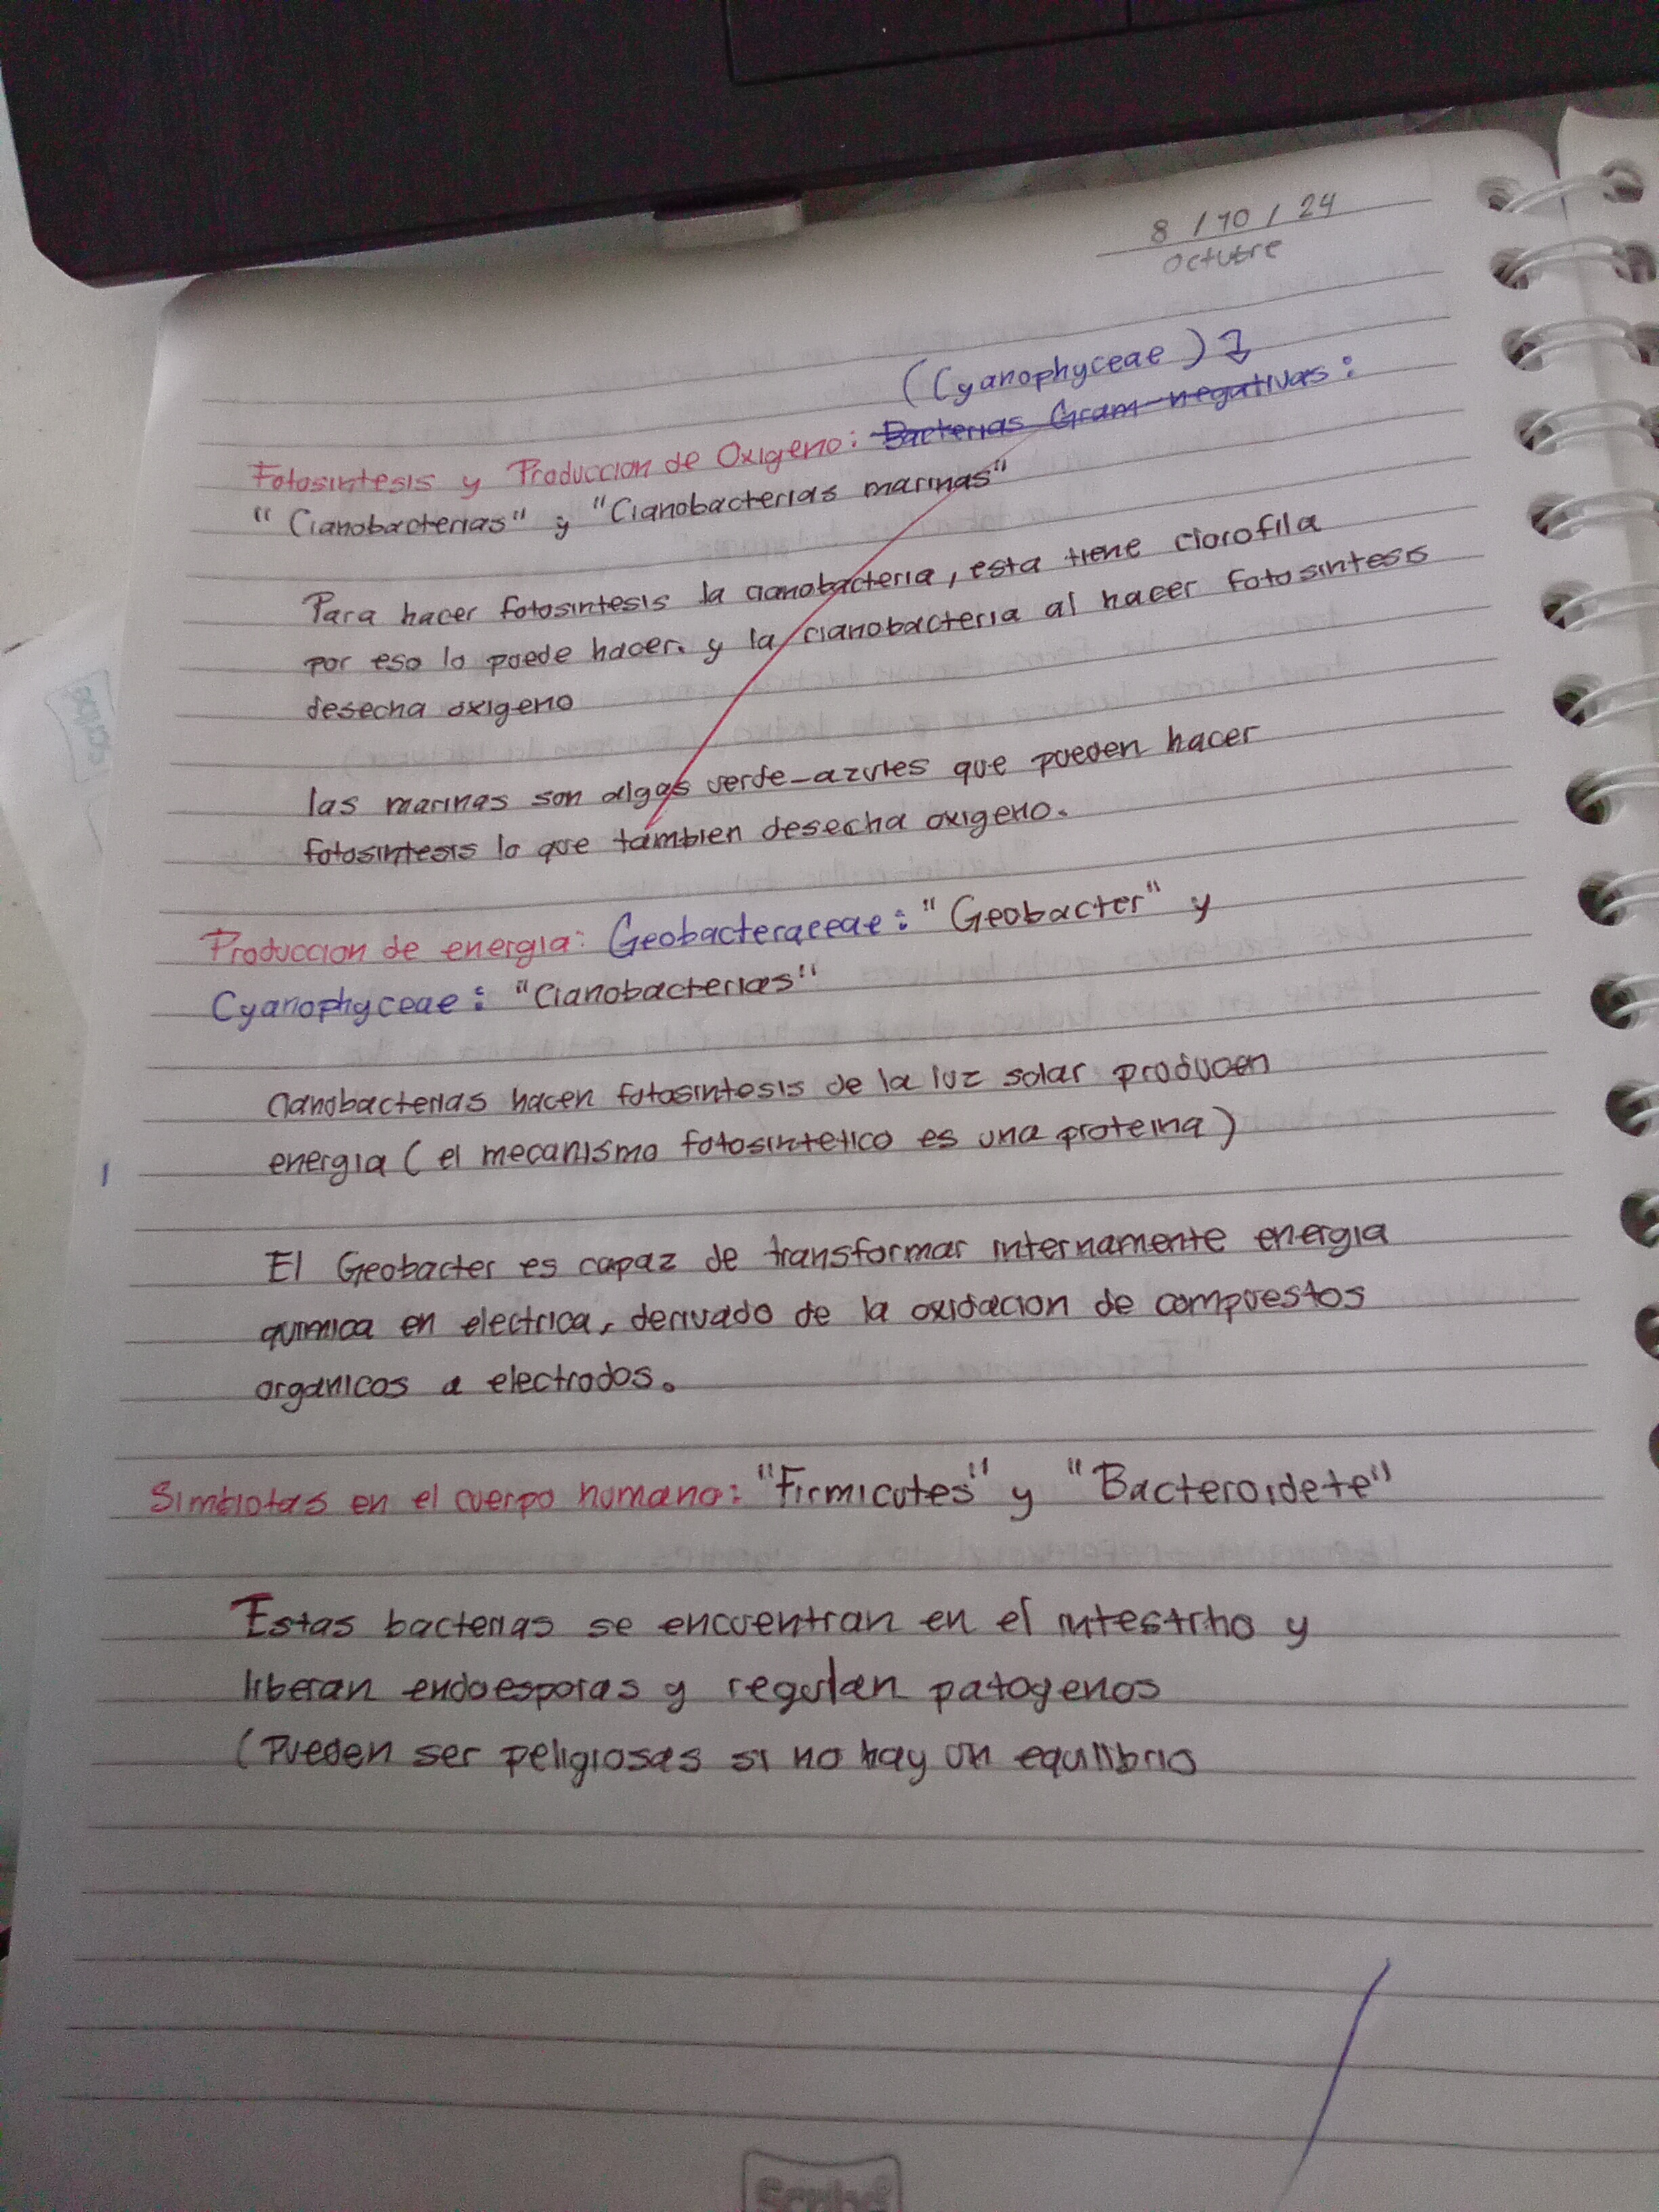 8 / 10 / 24
Octubre
(Cyanophyceae)
Fotosintesis y Produccion de Oxigeno: Bacterias Gram-negativas:
"Cianobacterias" y "Cianobacterias marinas"
Para hacer fotosintesis la cianobacteria, esta tiene clorofila
por eso lo puede hacer. y la cianobacteria al hacer fotosintesis
desecha oxigeno
las marinas son algas verde-azules que pueden hacer
fotosintesis lo que tambien desecha oxigeno.
Produccion de energia: Geobacteraceae: "Geobacter" y
Cyanophyceae: "Cianobacterias"
cianobacterias hacen fotosintesis de la luz solar producen
energia (el mecanismo fotosintetico es una proteina)
El Geobacter es capaz de transformar internamente energia
quimica en electrica, derivado de la oxidacion de compuestos
organicos a electrodos.
Simbiotas en el cuerpo humano: "Firmicutes" y "Bacteroidete"
Estas bacterias se encuentran en el intestino y
liberan endoesporas y regulan patogenos
(Pueden ser peligrosas si no hay un equilibrio
Scribe